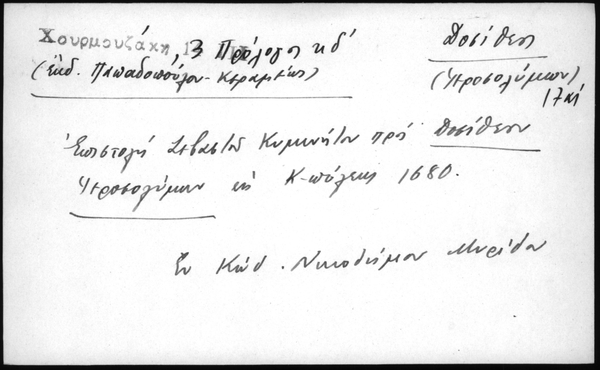 Χουρμουζάκη, 13 Πρόλογος κδ΄
(ἐκδ. Παπαδοπούλου-Κεραμέως)
Δοσίθεος
(Ἱεροσολύμων)
17 αἰ
Ἐπιστολή Σεβαστοῦ Κυμινήτου πρός Δοσίθεον
Ἱεροσολύμων ἐκ Κ-πόλεως 1680.
Ἐν Κώδ. Νικοδήμου